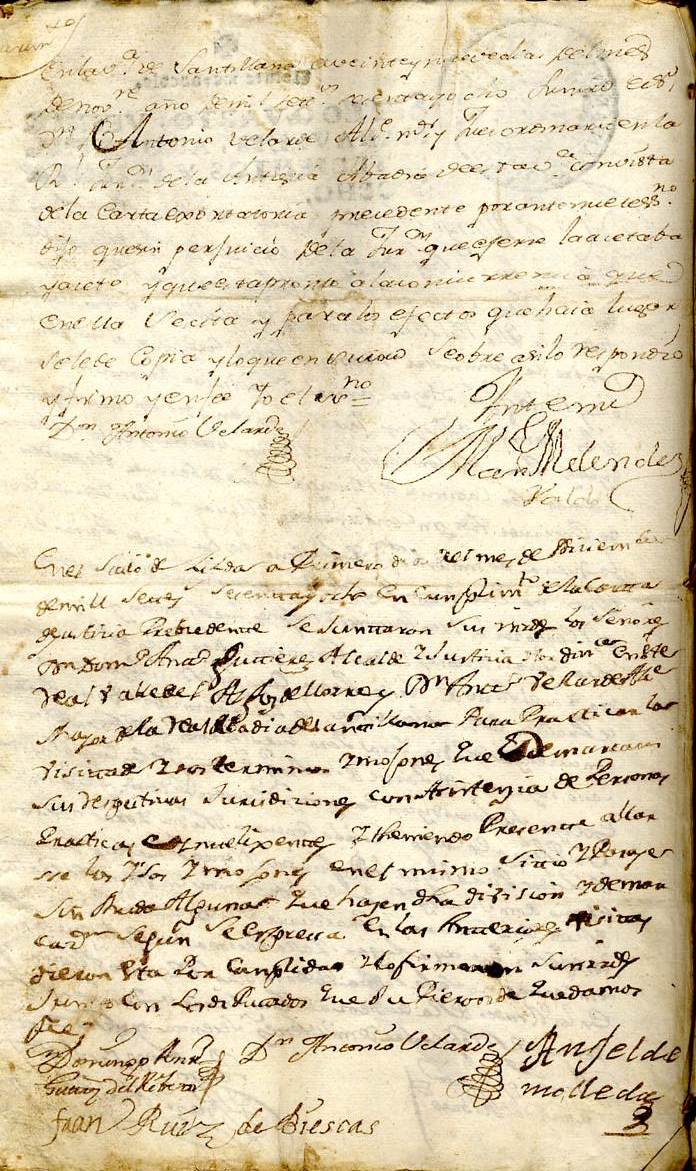 en la v.ª de Santillana a veinte y nueve dias del mes
de nov.re año de mil set.s sesenta y ocho el s.r
D.n Antonio Velarde Alc.e m.r y Juez ordinario en la
R.l Jur.n de la Abadia de esta v.ª con vista
de la Carta exortatoria precedente por ante mi el es.no
dijo que sin perjuicio de la Jur.n que ejerze la acetaba
y aceto y que esta pronto a la concurrencia que
en ella se cita y para los efectos que haia lugar
se le de Copia y lo que en su so asi lo respondio
y firmo y en fee Yo el es.no =
D.n Antonio Velarde
Ante mi
Man.l Melendez
Valdes
En el Sitio de a Primero dia del mes de Diciembre
de mill setez.s sesenta y ocho en Cumplim.to de la Carta
de Justicia Prebedente se Juntaron sus mrds los Señores
Don Dom.o Ant.o Gutierrez Alcalde y Justicia hordin.ª en este
Real Valle de Alfoz de Lloredo y D.n Ant.o Velarde Alc.e
Mayor de la Real Abadia de Santillana Para Practicar la
Visita de los terminos y mojones que demarcan
sus respectivas Jurisdiciones con Asistenzia de Personas
Practicas e yntelixentes y theniendo Presente allar
se los y mojones en el mismo Sitio y Paraje
sin Duda Alguna que hazen dha division y demar
caz.on segun se Espresa en las Anteriores visitas
dieron esta Por Cumplida y lo firmaron sus mrds
Junto con los diputados que supieron de que damos
fee =
D.n Domingo Ant.o
Gutierrz del Ribero
D.n Antonio Velarde
Anjel de
molleda
Juan Ruiz de Biescas